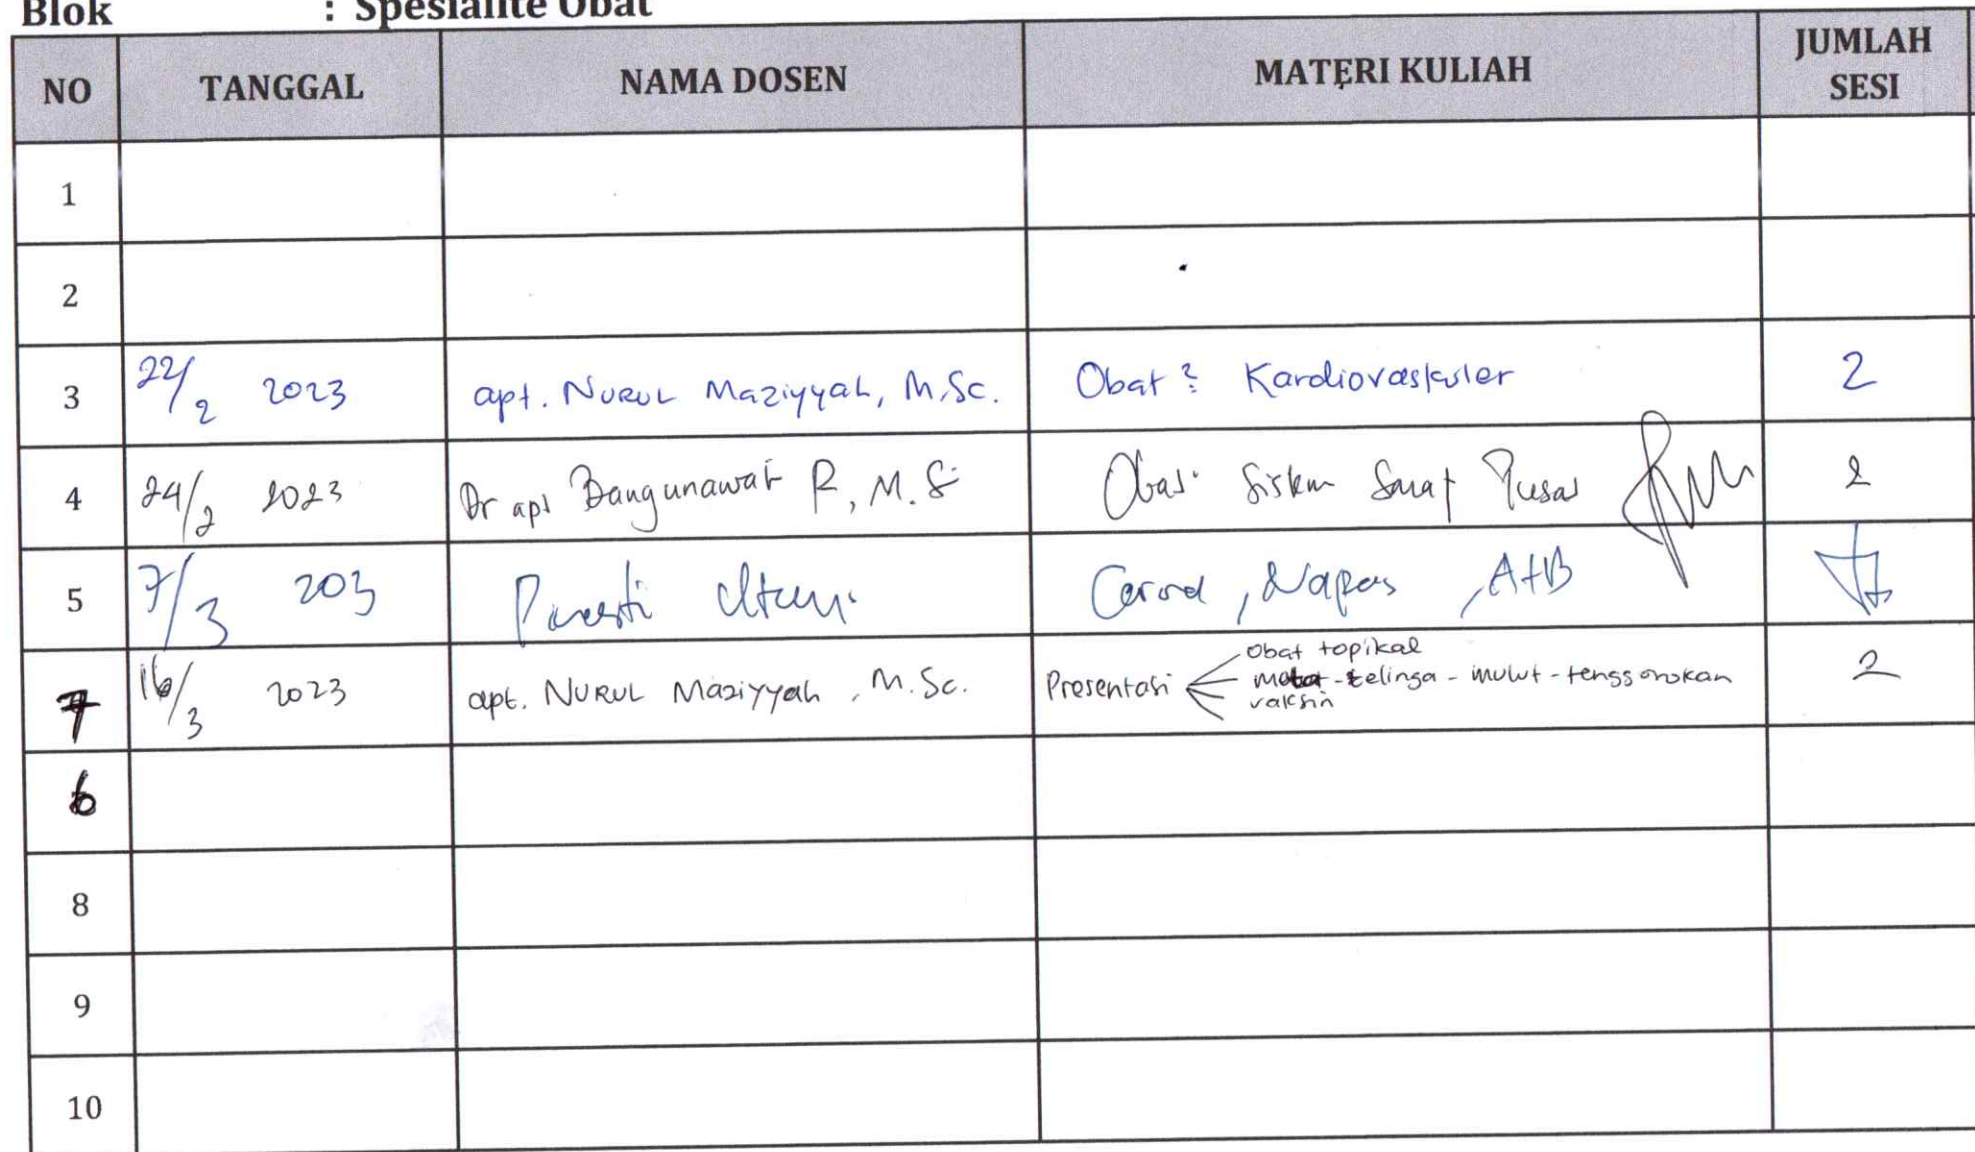 Blok : Spesialite Obat
NO TANGGAL NAMA DOSEN MATERI KULIAH JUMLAH SESI
1
2
3 22/2 2023 apt. Nurul Maziyyah, M.Sc. Obat² Kardiovaskuler 2
4 24/2 2023 Dr apt Bangunawati R, M.Si Obat Sistem Saraf Pusat 2
5 7/3 203 , Napas
7 16/3 2023 apt. Nurul Maziyyah, M.Sc. Presentasi 2
obat topikal
mata - telinga - mulut - tenggorokan
vaksin
6
8
9
10